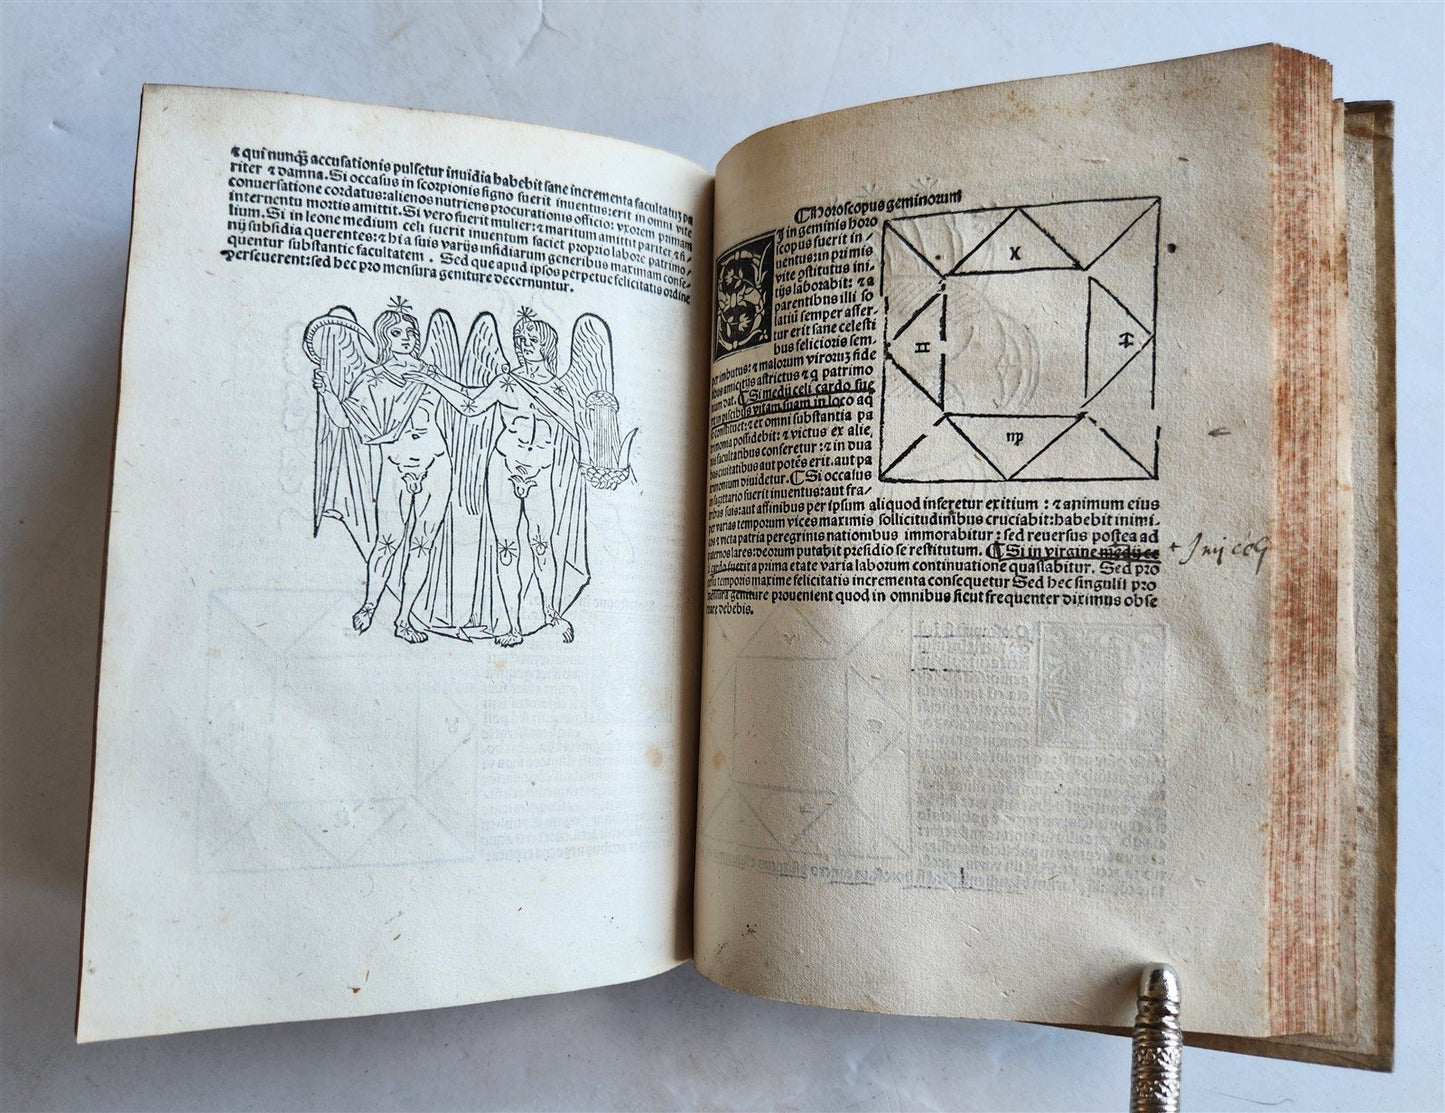 ⁊ qui nunq̃ accusationis pulsetur inuidia habebit sane incrementa facultatuʒ pa
riter ⁊ damna. Si occasus in scorpionis signo fuerit inuentus: erit in omni vite
conuersatione cordatus: alienos nutriens procurationis officio: vxorem primam
interuentu mortis amittit. Si vero fuerit mulier: ⁊ maritum amittit pariter ⁊ fi-
lium. Si in leone medium celi fuerit inuentum faciet proprio labore patrimo-
nij subsidia querentes: ⁊ hi a suis varijs insidiarum generibus maximam conse-
quentur substantie facultatem. Sed que apud ipsos perpetue felicitatis ordine
perseuerent: sed hec pro mensura geniture decernuntur.
Horoscopus geminorum
in geminis horo
scopus fuerit in-
uentus: in primis
vite ꝯstitutus ini-
tijs laborabit: ⁊ a
parentibus illi so
latiũ semper affer-
tur erit sane celesti
bus felicioris sem-
per imbutus: ⁊ malorum viroruʒ fide
ibus amicitijs astrictus ⁊ q̨ patrimo
nium dat. Si medij celi cardo fue
in piscibus vitam suam in loco aq
constituet: ⁊ ex omni substantia pa
trimonia possidebit: ⁊ victus ex alie,
nis facultatibus conferetur: ⁊ in dua
bus ciuitatibus aut potẽs erit. aut pa
trimonium diuidetur. Si occasus
in sagittario fuerit inuentus: aut fra-
tribus suis: aut affinibus per ipsum aliquod inferetur exitium: ⁊ animum eius
per varias temporum vices maximis sollicitudinibus cruciabit: habebit inimi-
cos ⁊ victa patria peregrinis nationibus immorabitur: sed reuersus postea ad
paternos lares: deorum putabit presidio se restitutum. Si in virgine medij ce
li cardo fuerit a prima etate varia laborum continuatione quassabitur. Sed pro
cessu temporis maxime felicitatis incrementa consequetur Sed hec singulis pro
mensura geniture prouenient quod in omnibus sicut frequenter diximus obse
ruare debebis.
X
♊
♐
♍